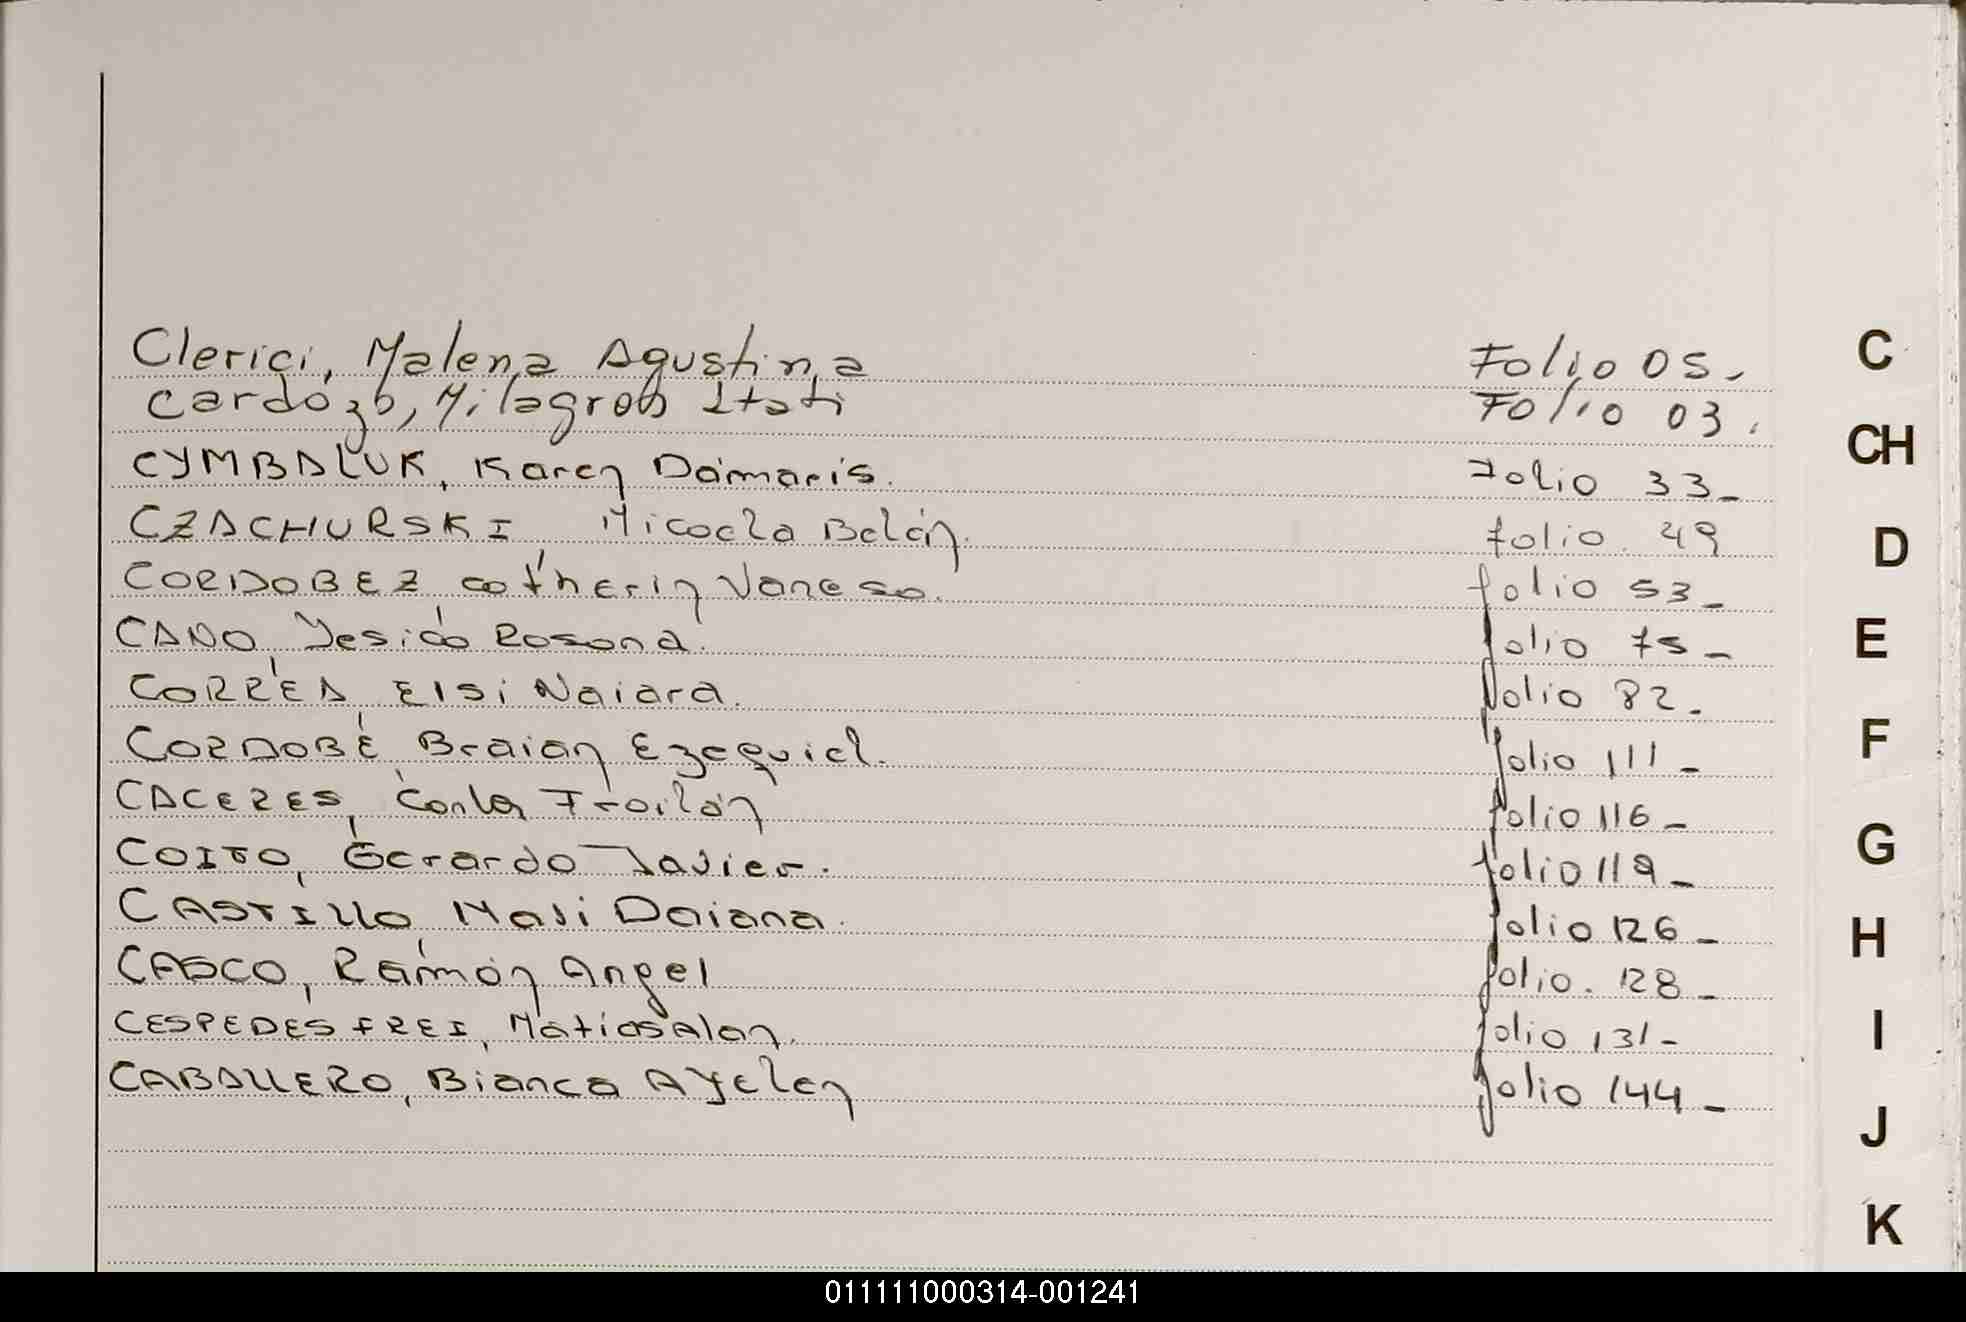 Clerici, Malena Agustina Folio 05.
Cardozo, Milagros Itati Folio 03.
CYMBALUK, Karen Damaris. Folio 33_
CZACHURSKI Micaela Belén. folio. 49
CORDOBEZ, catherin Vanesa. folio 53_
CANO, Yesica Rosana. folio 75_
CORREA, Elsi Naiara. folio 82.
CORDOBE, Braian Ezequiel. folio 111_
CACERES, Froilán folio 116_
COITO, Gerardo Javier. folio 119_
CASTILLO, Mali Daiana. folio 126_
CASCO, Ramón Angel folio. 128_
CESPEDES FREI, Matias Alan. folio 131_
CABALLERO, Bianca Ayelen folio 144_
C
CH
D
E
F
G
H
I
J
K
011111000314-001241